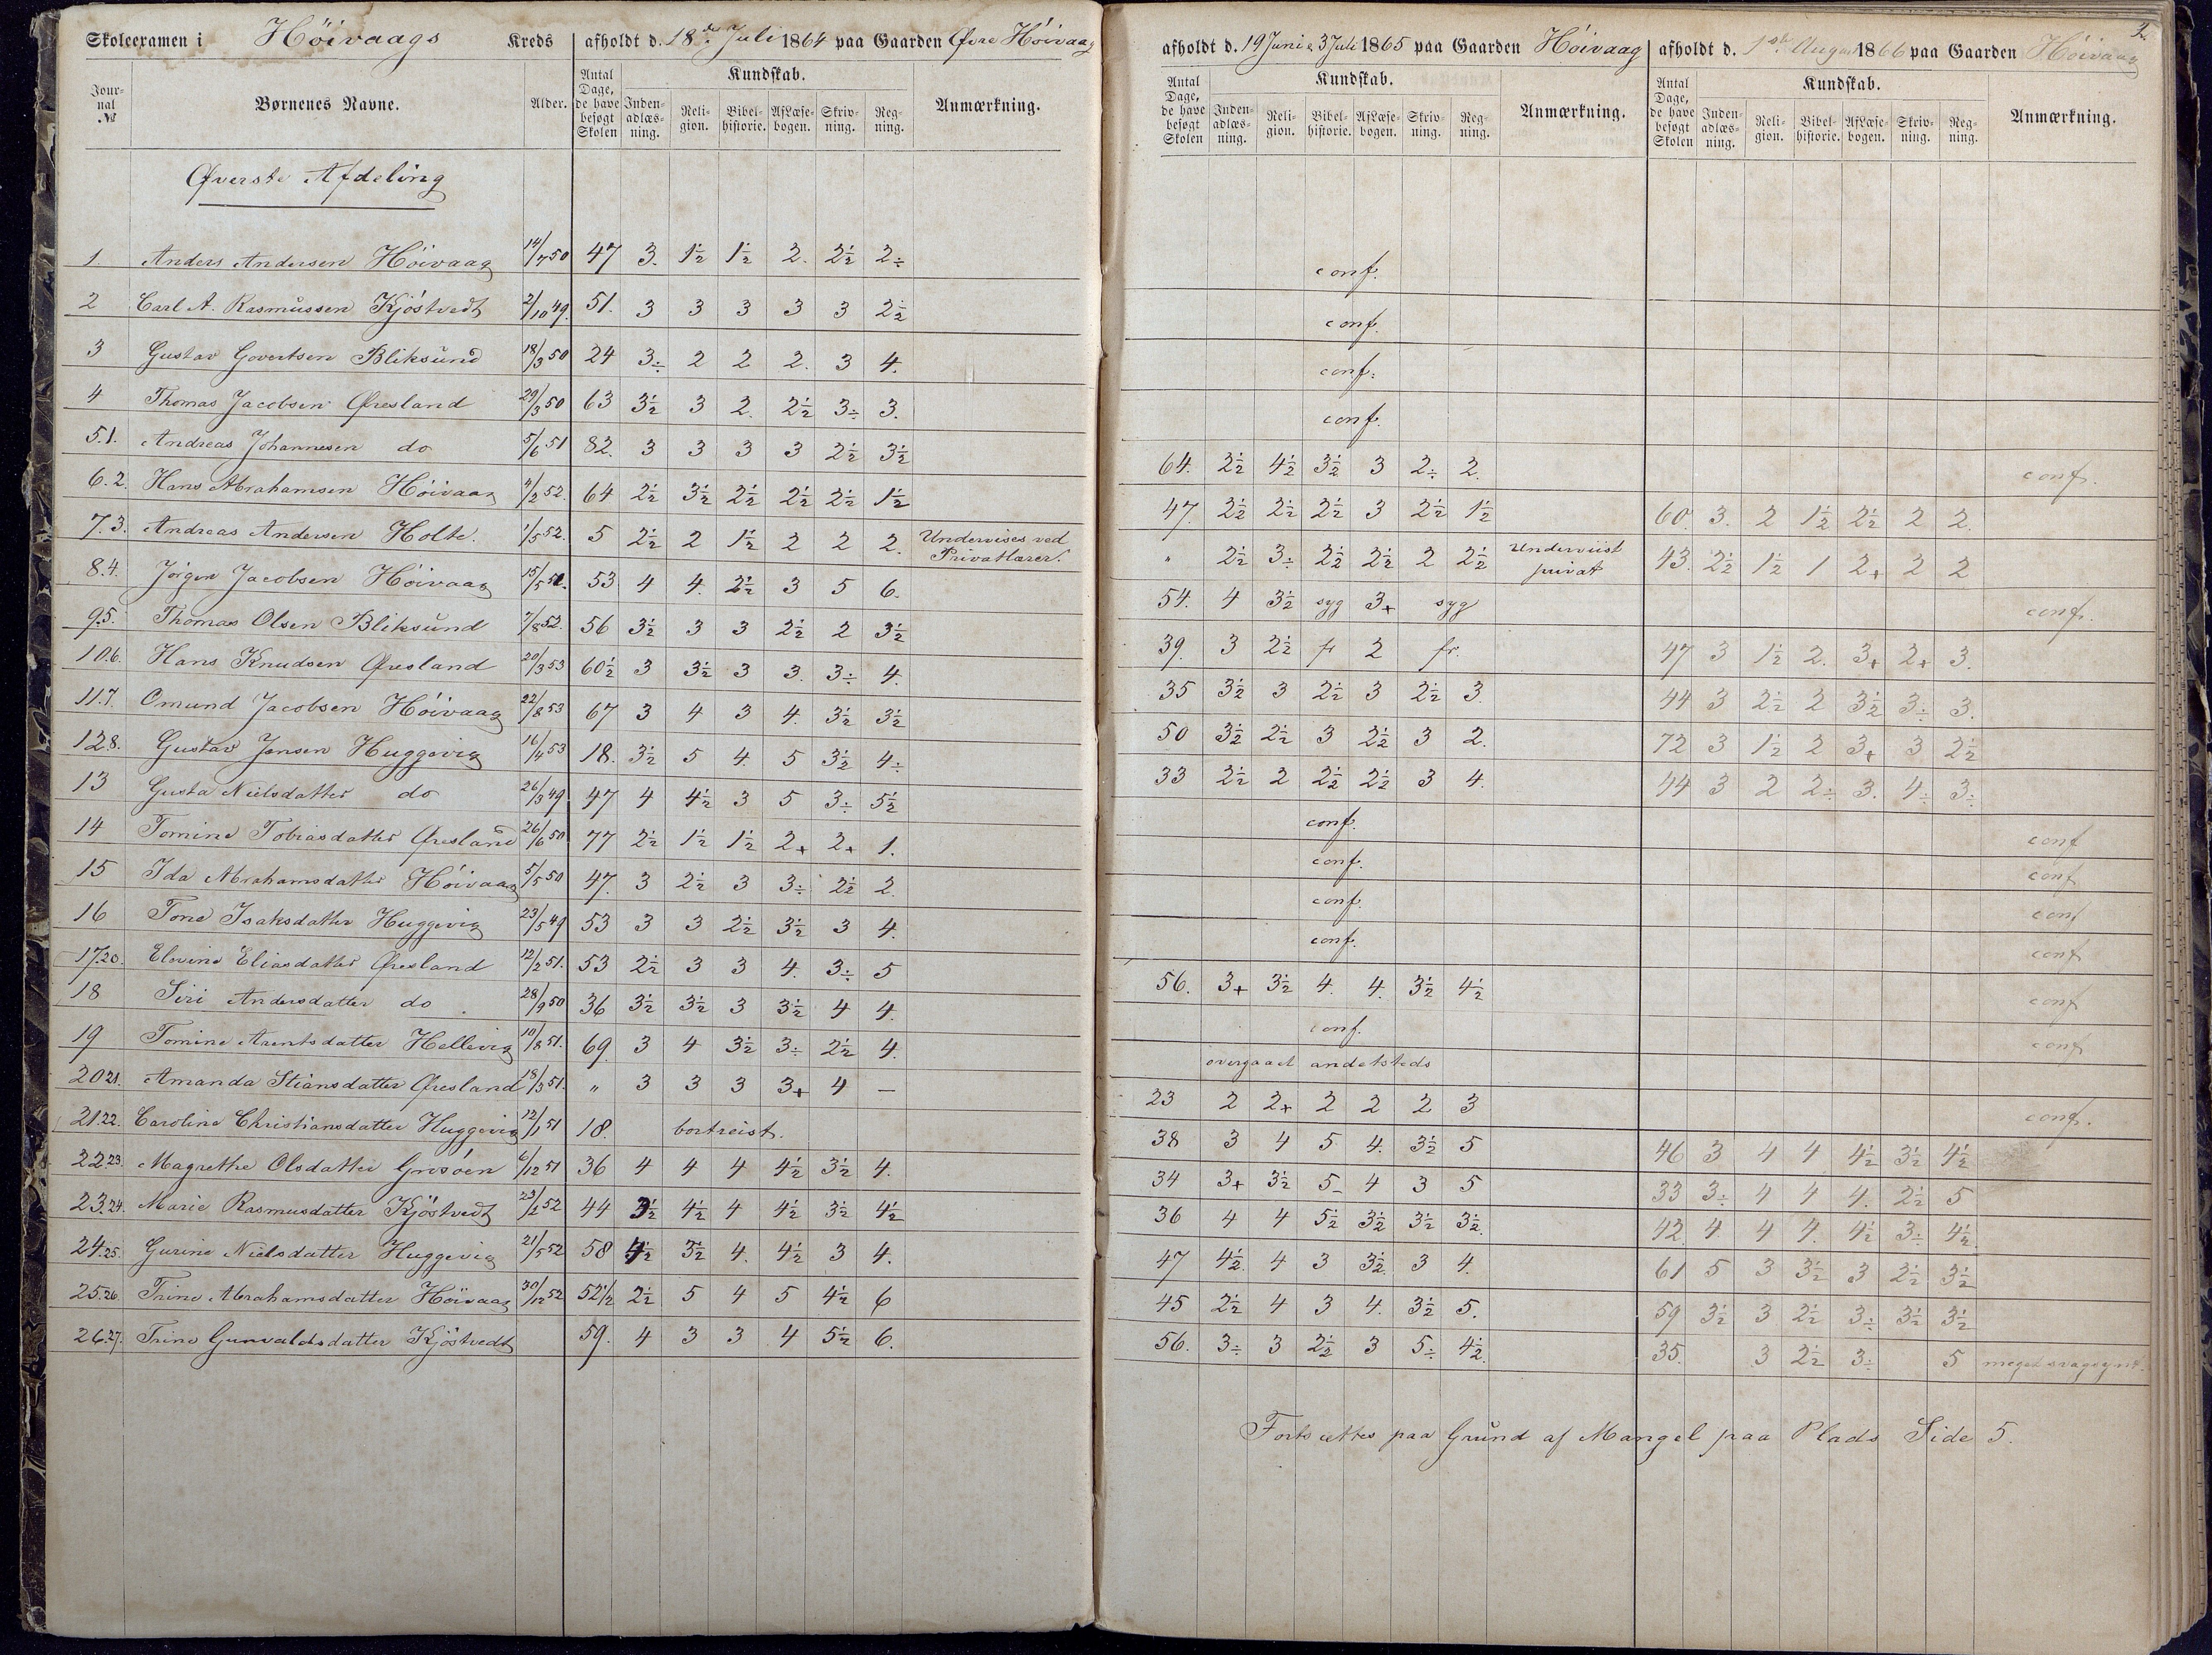 Skoleexamen i Høivaags Kreds afholdt d. 18de Juli 1864 paa Gaarden Øvre Høivaag
Journal № Børnenes Navne. Alder. Antal Dage, de have besøgt Skolen Kundskab. Indenadlæsning. Religion. Bibelhistorie. Af Læsebogen. Skrivning. Regning. Anmærkning.
Øverste Afdeling
1. Anders Andersen Høivaag 14/7 50 47 3. 1½ 1½ 2. 2½ 2÷
2 Carl A. Rasmussen Kjøstvedt 2/10 49. 51. 3 3 3 3 3 2½
3 Gustav Govertsen Bliksund 18/3 50 24 3÷ 2 2 2. 3 4.
4 Thomas Jacobsen Øresland 29/3 50 63 3½ 3 2. 2½ 3÷ 3.
5.1. Andreas Johannesen do 5/6 51 82. 3 3 3 3 2½ 3½
6.2. Hans Abrahamsen Høivaag 4/2 52. 64 2½ 3½ 2½ 2½ 2½ 1½
7.3. Andreas Andersen Holte. 1/5 52. 5 2½ 2 1½ 2 2 2. Undervises ved Privatlærer.
8.4. Jørgen Jacobsen Høivaag 15/5 51. 53 4 4. 2½ 3 5 6.
9.5. Thomas Olsen Bliksund 7/8 52. 56 3½ 3 3 2½ 2 3½
10.6. Hans Knudsen Øresland 20/3 53 60½ 3 3½ 3 3. 3÷ 4.
11.7. Omund Jacobsen Høivaag 22/8 53 67 3 4 3 4. 3½ 3½
12.8. Gustav Jensen Huggevig 16/4 53 18. 3½ 5 4. 5 3½ 4÷
13 Gusta Nielsdatter do 26/3 49 47 4 4½ 3 5 3÷ 5½
14 Tomine Tobiasdatter Øresland 26/6 50 77 2½ 1½ 1½ 2+ 2+ 1.
15 Ida Abrahamsdatter Høivaag 5/5 50 47. 3 2½ 3 3÷ 2½ 2
16 Tone Isaksdatter Huggevig 23/5 49 53 3 3 2½ 3½ 3 4.
17.20. Elevine Eliasdatter Øresland 12/2 51. 53 2½ 3 3 4. 3÷ 5
18 Siri Andersdatter do 28/9 50 36 3½ 3½ 3 3½ 4 4.
19 Tomine Arentsdatter Hellevig 10/8 51. 69. 3 4 3½ 3÷ 2½ 4.
20.21. Amanda Stiansdatter Øresland 18/3 51. " 3 3 3 3+ 4 —
21.22. Caroline Christiansdatter Huggevig 12/1 51 18. bortreist.
22.23. Magrethe Olsdatter Grosøen 6/12 51 36 4 4 4 4½ 3½ 4.
23.24. Marie Rasmusdatter Kjøstvedt 23/2 52 44 3½ 4½ 4 4½ 3½ 4½
24.25. Gurine Nielsdatter Huggevig 21/5 52 58 4½ 3½ 4. 4½ 3 4.
25.26. Trine Abrahamsdatter Høivaag 30/12 52 52½ 2½ 5 4 5 4½ 6
26.27. Trine Gunvaldsdatter Kjøstvedt 59. 4 3 3 4 5½ 6.
afholdt d. 19 Juni & 3 Juli 1865 paa Gaarden Høivaag
Antal Dage, de have besøgt Skolen Kundskab. Indenadlæsning. Religion. Bibelhistorie. Af Læsebogen. Skrivning. Regning. Anmærkning.
conf.
conf.
conf.
conf.
64. 2½ 4½ 3½ 3 2÷ 2.
47. 2½ 2½ 2½ 3 2½ 1½
" 2½ 3÷ 2½ 2½ 2 2½ Underviist privat
54. 4 3½ syg 3+ syg
39. 3 2½ fr 2 fr.
35 3½ 3 2½ 3 2½ 3.
50 3½ 2½ 3 2½ 3 2.
33 2½ 2 2½ 2½ 3 4.
conf.
conf.
conf.
conf.
56. 3+ 3½ 4. 4. 3½ 4½
conf.
overgaaet andetsteds
23 2 2+ 2 2 2 3
38 3 4 5. 4. 3½ 5
34 3+ 3½ 5- 4 3 5
36 4 4 5½ 3½ 3½ 3½
47 4½ 4 3 3½ 3 4.
45 2½ 4 3 4. 3½ 5.
56. 3÷ 3 2½ 3 5÷ 4½
Fortsættes paa Grund af Mangel paa Plads Side 5.
2.
afholdt d. 1ste August 1866 paa Gaarden Høivaag
Antal Dage, de have besøgt Skolen Kundskab. Indenadlæsning. Religion. Bibelhistorie. Af Læsebogen. Skrivning. Regning. Anmærkning.
conf.
60. 3. 2 1½ 2½ 2 2.
43. 2½ 1½ 1 2+ 2 2
conf.
47 3 1½ 2. 3+ 2+ 3.
44 3 2½ 2 3½ 3÷ 3.
72 3 1½ 2 3+ 3 2½
44 3 2 2÷ 3. 4÷ 3÷
conf
conf
conf
conf
conf
conf
conf.
46 3 4 4 4½ 3½ 4½
33 3÷ 4 4 4. 2½ 5
42. 4. 4 4. 4½ 3÷ 4½
61 5 3 3½ 3 2½ 3½
59 3½ 3 2½ 3÷ 3½ 3½
35. 3 2½ 3÷ 5 meget svagsynt.